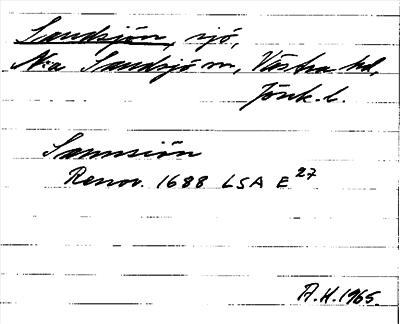 Sandsjön, sjö,
N:a Sandsjö sn, Västra hd,
Jönk. l.
Sannsiön
Renov. 1688 LSA E27
A.H. 1965.